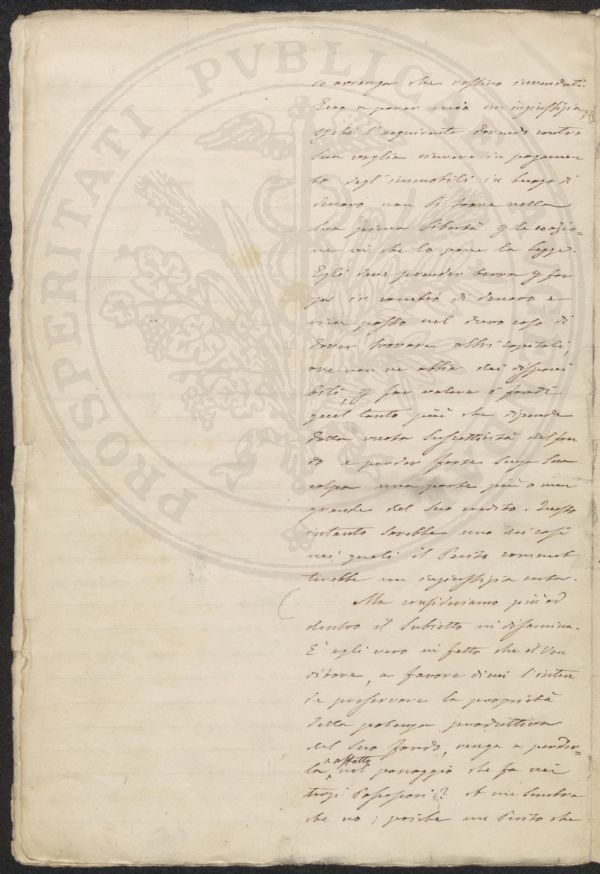 che restino invenduti.
Ecco a parer mio un'ingiustizia,
l'acquirente dovendo contro
sua voglia ricevere in pagamen
to degl'immobili in luogo di
denaro non si trova nella
sua piena libertà
ne in che lo pone la legge.
Egli deve prender terra
in cambio di denaro e
vien posto nel duro caso di
dover trovare altri capitali,
ove non ne abbia dei disponi
bili, far valere i fondi
quel tanto più che dipende
dalla suscettività del fon
do e perder forse senza sua
colpa una parte più o men
grande del suo credito. Questo
intanto sarebbe uno dei casi
nei quali il Perito commet
terebbe un ingiustizia certa.
Ma consideriamo più ad
dentro il subietto in disamina.
È egli vero in fatto che il Ven
ditore, a favore di cui s'inten
de preservare la proprietà
della potenza produttiva
del suo fondo, venga a perder-
la affatto nel passaggio che fa nei
terzi Possessori? A me sembra
che no; poiche un Perito che
PROSPERITATI PVBLICAE